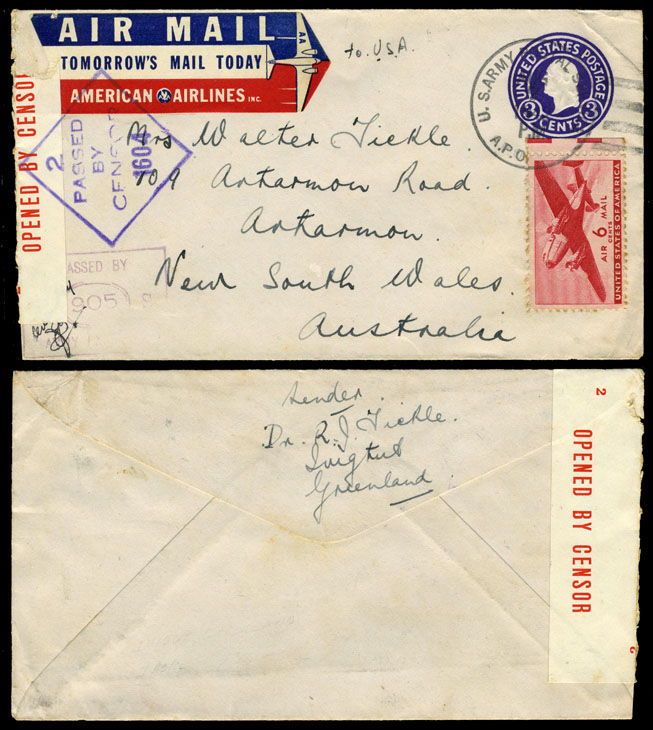 AIR MAIL
TOMORROW'S MAIL TODAY
AMERICAN AA AIRLINES INC.
AA
to U.S.A.
U.S. ARMY
A.P.O.
UNITED STATES POSTAGE
3 CENTS 3
OPENED BY CENSOR
2
PASSED
BY
CENSOR
1604
Mrs Walter Tickle.
709 Artarmon Road.
Artarmon.
New South Wales.
Australia
AIR 6 MAIL
CENTS
UNITED STATES OF AMERICA
PASSED BY
905
sender.
Dr. R. J. Tickle.
Ivigtut
Greenland
2
OPENED BY CENSOR
2